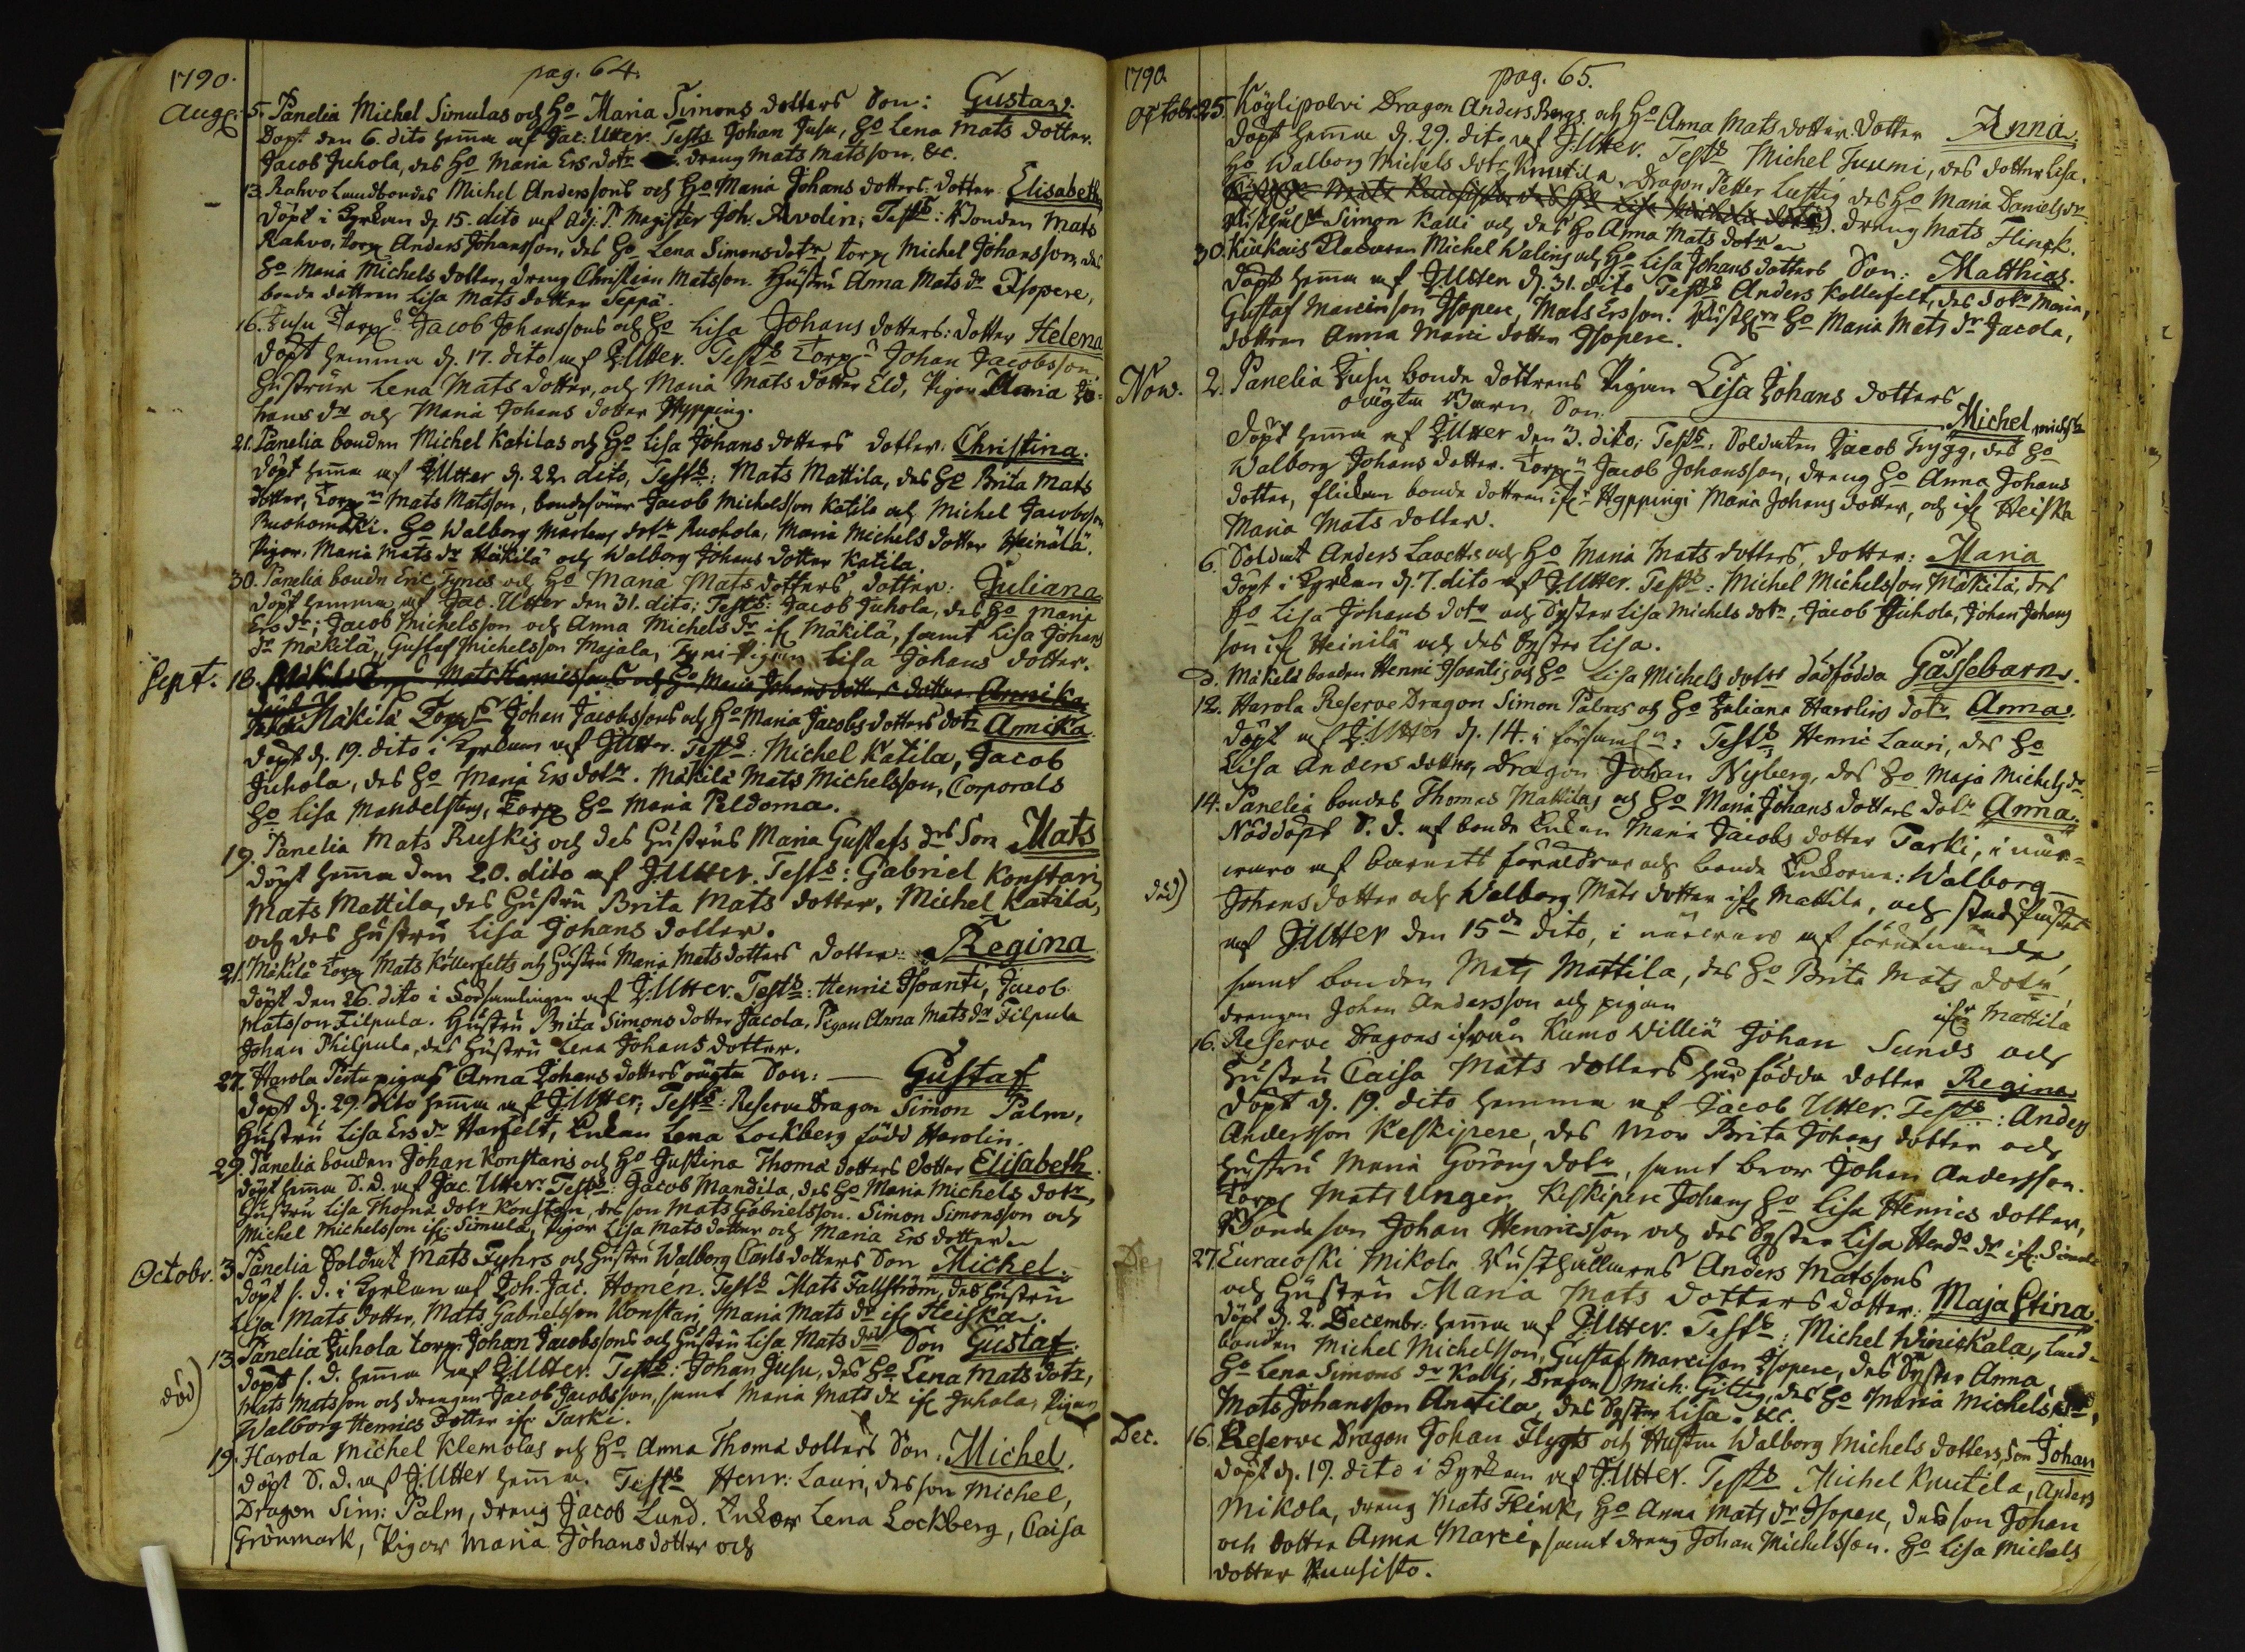 1790. pag. 64.
Aug: 5. Panelia Michel Simulas och Ho Maria Simons dotters Son: Gustav.
Döpt den 6. dito hema af Jac: Utter. Tests Johan Jusu, Ho Lena Mats dotter.
Jacob Juhola, des Ho Maria Ers dotr dreng Mats Matsson. &c.
13. Rahvo Landbondes Michel Anderssons och Ho Maria Johans dotters dotter Elisabeth
döpt i Kyrkan d. 15. dito af Adj. P. Magister Joh. Avolin; Tests: Bonden Mats
Rahvo, torp Anders Johansson, des Ho Lena Simons dotr, torp Michel Johansson, des
Ho Maria Michels dotter, dreng Christian Matsson. Hustru Anna Mats dr Isopere,
bonde dottren Lisa Mats dotter Seppä.
16. Jusu Torps Jacob Johanssons och Ho Lisa Johans dotters: dotter Helena
döpt hemma d. 17. dito af J: Utter. Tests Torp Johan Jacobsson
hustrur Lena Mats dotter, och Maria Mats dotter Eld, Pigor Maria Jo-
hans dr och Maria Johans dotter Hypping.
21. Panelia bonden Michel Katilas och Ho Lisa Johans dotters dotter: Christina.
döpt hema af J: Utter d. 22 dito, Tests: Mats Mattila, des Ho Brita Mats
dotter, Torp Mats Matsson, bondesöner Jacob Michelsson Katila och Michel Jacobsson
Ruohomäki. Ho Walborg Martens dotr Ruohola, Maria Michels dotter Heinälä.
Pigor, Maria Mats dr Mäkilä och Walborg Johans dotter Katila.
30. Panelia bondn Eric Tynis och Ho Maria Mats dotters dotter: Juliana
döpt hemma af Jac: Utter den 31. dito; Tests: Jacob Juhola, des Ho Maria
Ers dr; Jacob Michelsson och Anna Michels dr if Mäkilä, samt Lisa Johans
dr Mäkilä, Gustaf Michelsson Majala, Tyni Pigan Lisa Johans dotter.
Sept. 18. Mats Henricssons och Ho Maria Johans dotters dotter Annika
Mäkilä Torps Johan Jacobssons och Ho Maria Jacobs dotters dotr Annika
döpt d. 19. dito i Kyrkan af J: Utter. Tests: Michel Katila, Jacob
Juhola, des Ho Maria Ers dotr. Mäkilä Mats Michelsson, Corporals
Ho Lisa Mandelsteng, Torp Ho Maria Peldoma.
19. Panelia Mats Ruskis och des Hustrus Maria Gustafs drs Son Mats
döpt hema den 20. dito af J: Utter. Tests: Gabriel Konstari,
Mats Mattila, des Hustru Brita Mats dotter, Michel Katila,
och des hustru Lisa Johans dotter.
21. Mäkilä torp Mats Kollerfelts och Hustru Maria Mats dotters dotter: Regina
döpt den 26. dito i Församlingen af J: Utter. Tests: Henric Isoanti, Jacob
Matsson Filpula. Hustru Brita Simons dotter Jacola, Pigan Anna Mats dr Filpula
Johan Philpula, des Hustru Lena Johans dotter.
27. Harola Pertu pigas Anna Johans dotters oägta Son: Gustaf
döpt d. 29. dito hema af J: Utter; Tests: Reserve Dragon Simon Palm,
hustru Lisa Ers dr Harfelt, Enkan Lena Lockberg född Harolin.
29. Panelia bonden Johan Konstaris och Ho Justina Thomæ dotters dotter Elisabeth
döpt hema S. D. af Jac: Utter. Tests: Jacob Mandila, des Ho Maria Michels dotr,
hustru Lisa Thomæ dotr Konstari, des son Mats Gabrielsson. Simon Simonsson och
Michel Michelsson if: Simula, Pigor Lisa Mats dotter och Maria Ers dotter.
Octobr. 3. Panelia Soldat Mats Fyhrs och hustru Walborg Carls dotters Son Michel.
döpt s. d. i Kyrkan af Joh. Jac. Homén. Tests Mats Fallström, des hustru
Lisa Mats dotter, Mats Gabrielsson Konstari, Maria Mats dr if Heiska.
13. Panelia Juhola torp: Johan Jacobssons och hustru Lisa Mats drs Son Gustaf.
död) döpt s. d. hema af J: Utter. Tests: Johan Jusu, des Ho Lena Mats dotr,
Mats Matsson och drengen Jacob Jacobsson, samt Maria Mats dr if Juhola, Pigan
Walborg Henrics dotter if: Tarki.
19. Harola Michel Klemolas och Ho Anna Thomæ dotters Son. Michel.
döpt S. D. af J: Utter hema. Tests Henr: Lauri, des son Michel,
Dragon Sim: Palm, dreng Jacob Lund. Enkor Lena Lockberg, Caisa
Grönmark, Pigor Maria Johans dotter och
1790. pag. 65.
October 25. Köylipolvi Dragon Anders Bergs och Ho Anna Mats dotter Dotter Anna
döpt hemma d. 29. dito af J: Utter. Tests Michel Juumi, des dotter Lisa.
Ho Walborg Michels dotr Knutila. Dragon Petter Lustig des Ho Maria Daniels dr
Simon Kalli och des Ho Anna Mats dotr dreng Mats Flinck.
30. Kiukais Michel Walins och Ho Lisa Johans dotters Son: Matthias.
döpt hema af J: Utter d. 31. dito Tests Anders Kollerfelt, des dotr Maria,
Gustaf Marcisson Isopere, Mats Ersson. Ho Maria Mats dr Jacola,
dottren Anna Marci dotter Isopere.
Nov. 2. Panelia Jusu bonde dottrens Pigan Lisa Johans dotters
oägta Barn Son. Michel
döpt hema af J: Utter den 3. dito; Tests, Soldaten Jacob Trygg, des Ho
Walborg Johans dotter. Torp Jacob Johansson, dreng Ho Anna Johans
dotter, flickan bonde dottren if Hyppingi Maria Johans dotter, och if Heiska
Maria Mats dotter.
6. Soldat Anders Laoctts och Ho Maria Mats dotters, dotter: Maria
döpt i Kyrkan d. 7. dito af J: Utter. Tests: Michel Michelsson Mäkilä, des
Ho Lisa Johans dotr och Syster Lisa Michels dotr, Jacob Juhola, Johan Johans
son if Heinilä och des Syster Lisa.
D. Mäkilä bonden Henric Isoantis och Ho Lisa Michels dotrs dödfödda Gåssebarn.
12. Harola Reserve Dragon Simon Palms och Ho Juliana Harolins dotr Anna.
döpt af J: Utter d. 14. i församl: Tests Henric Lauri, des Ho
Lisa Anders dotter, Dragon Johan Nyberg, des Ho Maja Michels dr.
14. Panelia bondes Thomas Mattilas och Ho Maria Johans dotters dotr Anna.
Nöddöpt S. d. af bonde Enkan Maria Jacobs dotter Tarki, i när-
waro af barnets föräldrar och bonde Enkorna: Walborg
död) Johans dotter och Walborg Mats dotter if Mattila, och stadfästat
af J: Utter den 15de dito, i närwaro af förutnämde,
samt bonden Mats Mattila, des Ho Brita Mats dotr,
drengen Johan Andersson och pigan
ifr Mattila
16. Reserve Dragons ifrån Kumo Williä Johan Sunds och
hustru Caisa Mats dotters här födda dotter Regina
döpt d. 19. dito hemma af Jacob Utter. Tests: Anders
Andersson Keskipere, des Mor Brita Johans dotter och
hustru Maria Görans dotr, samt bror Johan Andersson.
Torp Mats Unger, Keskipere Johans Ho Lisa Henrics dotter,
Bondeson Johan Henricsson och des Syster Lisa dr if: Simula
27. Euraioski Mikola Rusthållarens Anders Matssons
och hustru Maria Mats dotters dotter: Maja Stina
döpt d. 2. Decembr: hema af J: Utter. Tests: Michel Winickala, Land-
bonden Michel Michelsson, Gustaf Marcison Isopere, des Syster Anna,
Ho Lena Simons dr Kalli, Dragon Mich: Gitttig, des Ho Maria Michels dr,
Mats Johansson Anttila, des Syster Lisa. &c.
Dec. 16. Reserve Dragon Johan Flygts och Hustru Walborg Michels dotters, Son Johan
döpt d. 19. dito i Kyrkan af J: Utter. Tests Michel Knutila, Anders
Mikola, dreng Mats Flink, Ho Anna Mats dr Isopere, des son Johan
och dotter Anna Marci, samt dreng Johan Michelsson. Ho Lisa Michels
dotter Kuusisto.